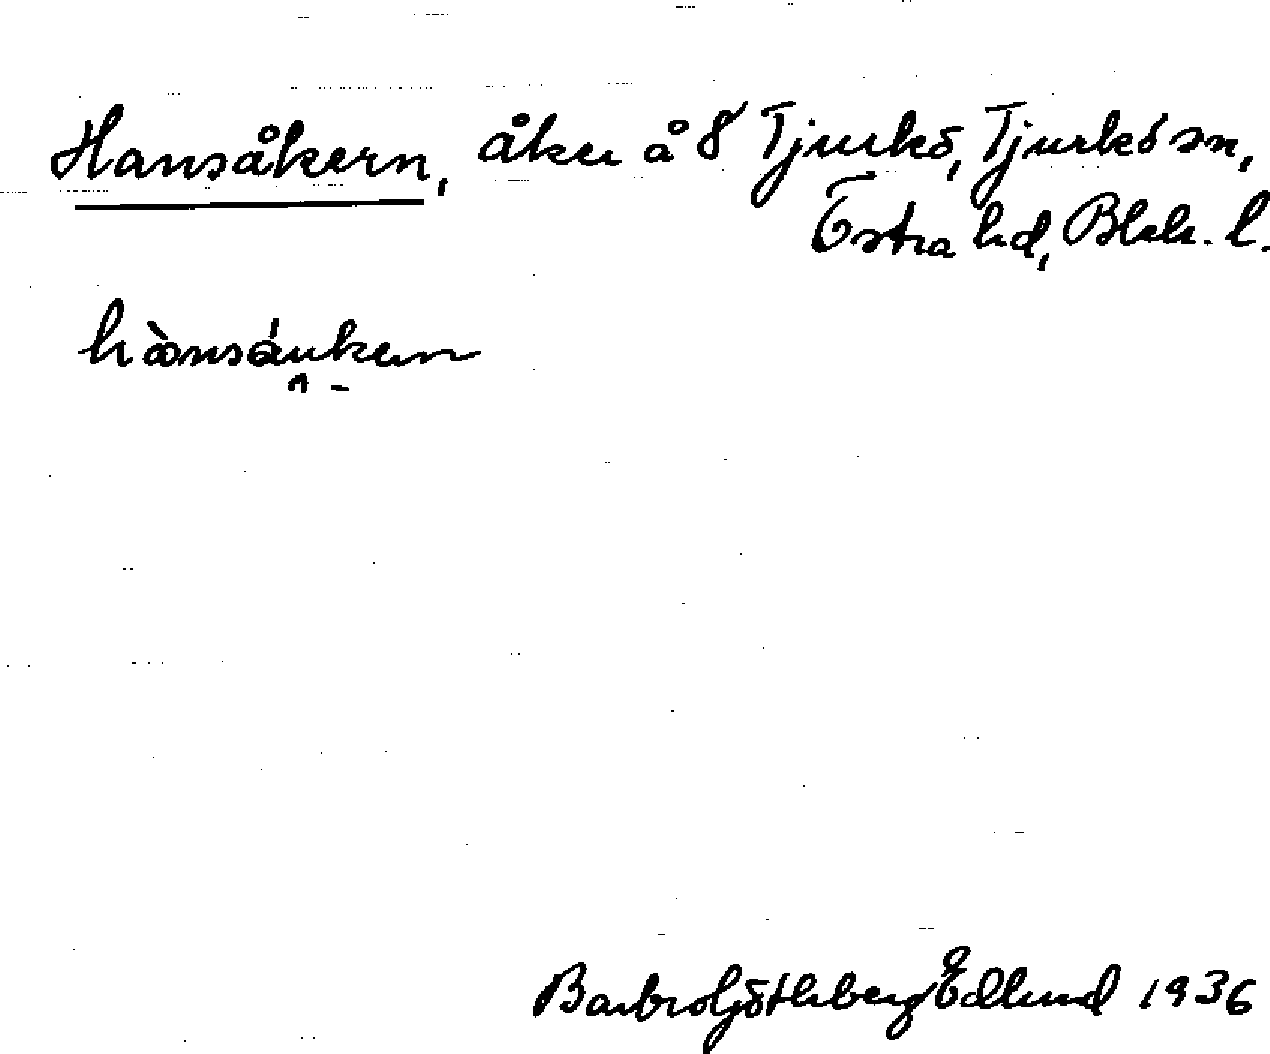 Hansåkern, åker å 8 Tjurkö, Tjurkö sn,
Östra hd, Blek. l.
Barbro Götheberg Edlund 1936